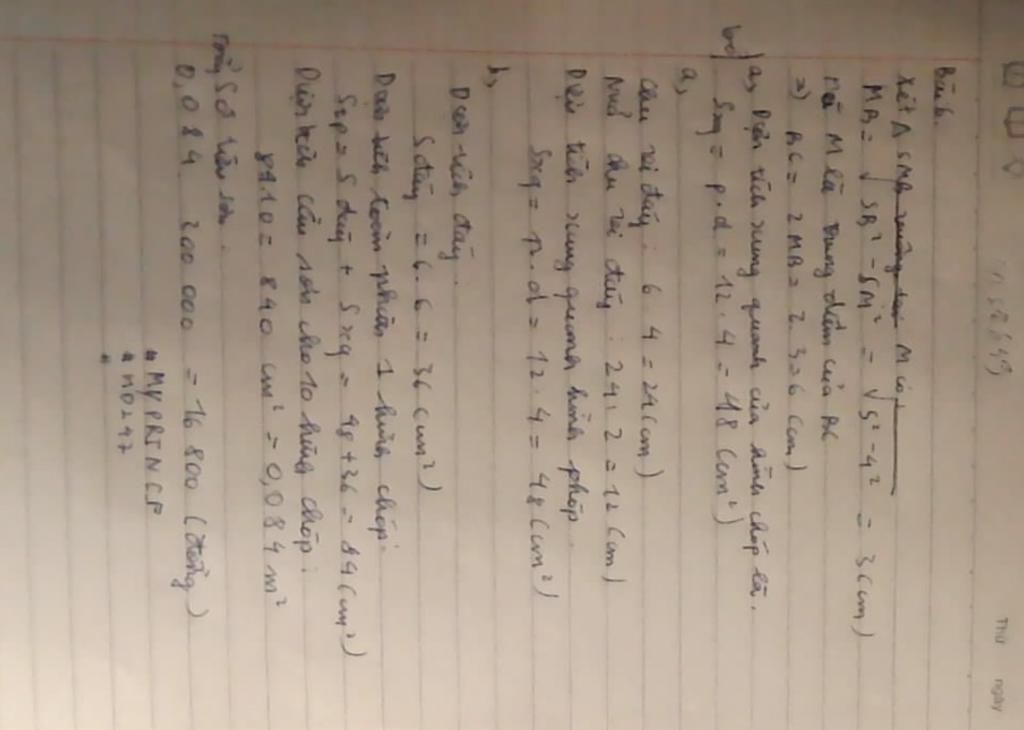 Bài 6.
Xét Δ SMB vuông tại M có
MB = √SB² - SM² = √5² - 4² = 3 (cm)
mà M là trung điểm của BC
=) BC = 2 MB = 2. 3 = 6 (cm)
a, Diện tích xung quanh của hình chóp là.
Sxq = p. d = 12. 4 = 48 (cm²)
a,
Chu vi đáy : 6. 4 = 24 (cm)
Nửa chu vi đáy : 24 : 2 = 12 (cm)
Diện tích xung quanh hình phóp.
Sxq = p. d = 12. 4 = 48 (cm²)
b,
Diện tích đáy.
S đáy = 6. 6 = 36 (cm²)
Diện tích toàn phần 1 hình chóp:
Stp = S đáy + Sxq = 48 + 36 = 84 (cm²)
Diện tích cần sơn cho 10 hình chóp:
84.10 = 840 cm² = 0,084 m²
0,084. 200 000 = 16 800 (đồng)
* MY PRINCE
* ND247
*
Thứ ngày